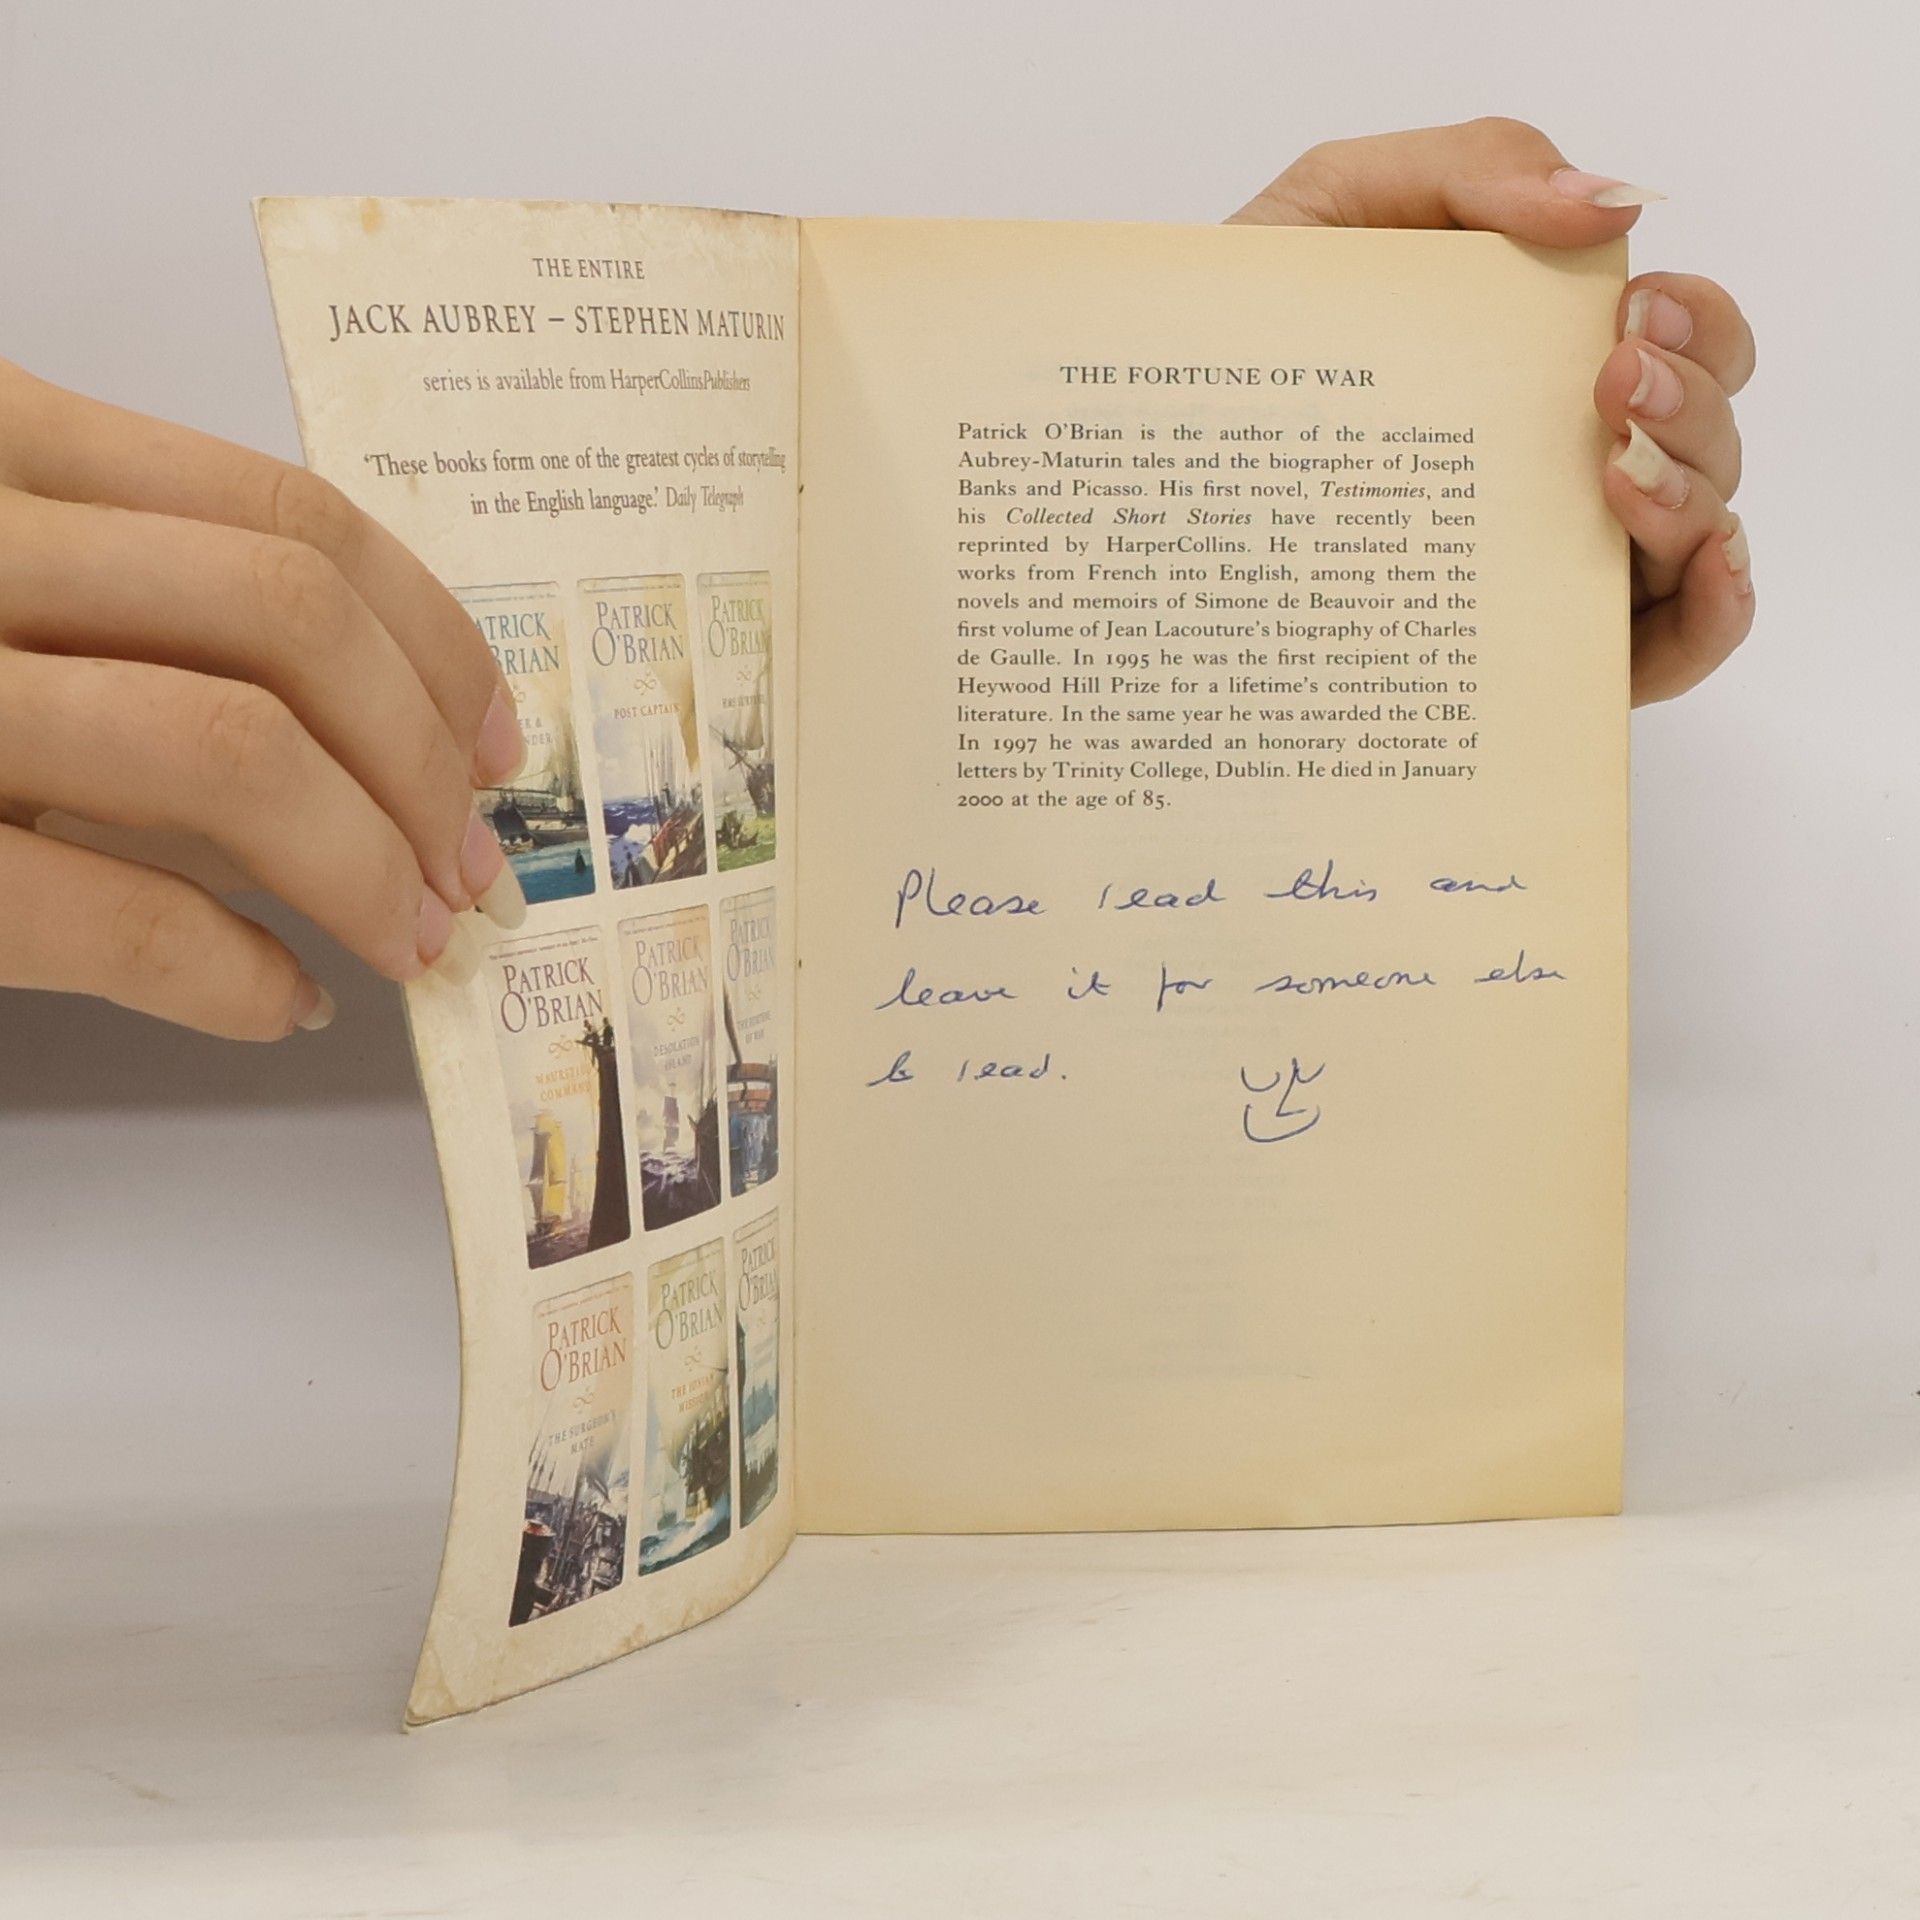 THE ENTIRE
JACK AUBREY – STEPHEN MATURIN
series is available from HarperCollinsPublishers
‘These books form one of the greatest cycles of storytelling
in the English language.’ Daily Telegraph
PATRICK
O'BRIAN
POST CAPTAIN
PATRICK
O'BRIAN
HMS SURPRISE
PATRICK
O'BRIAN
MAURITIUS
COMMAND
PATRICK
O'BRIAN
DESOLATION
ISLAND
PATRICK
O'BRIAN
THE FORTUNE
OF WAR
PATRICK
O'BRIAN
THE SURGEON'S
MATE
PATRICK
O'BRIAN
THE IONIAN
MISSION
PATRICK
O'BRIAN
THE FORTUNE OF WAR
Patrick O'Brian is the author of the acclaimed
Aubrey-Maturin tales and the biographer of Joseph
Banks and Picasso. His first novel, Testimonies, and
his Collected Short Stories have recently been
reprinted by HarperCollins. He translated many
works from French into English, among them the
novels and memoirs of Simone de Beauvoir and the
first volume of Jean Lacouture's biography of Charles
de Gaulle. In 1995 he was the first recipient of the
Heywood Hill Prize for a lifetime's contribution to
literature. In the same year he was awarded the CBE.
In 1997 he was awarded an honorary doctorate of
letters by Trinity College, Dublin. He died in January
2000 at the age of 85.
Please read this and
leave it for someone else
to read.